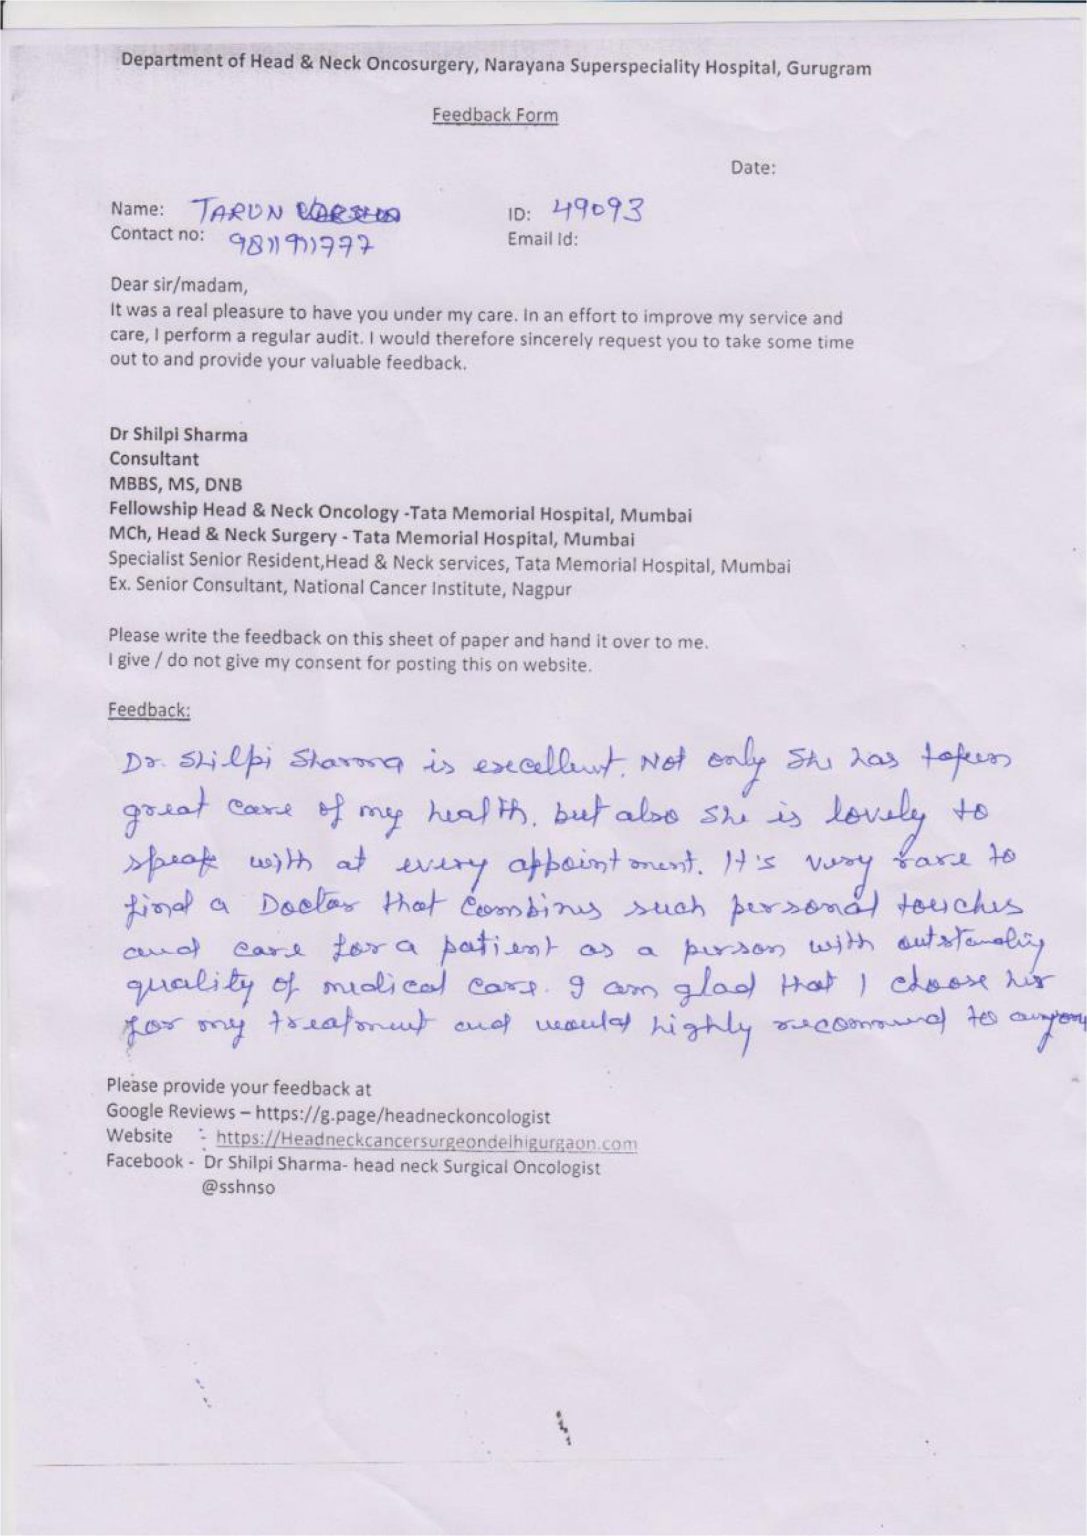 Department of Head & Neck Oncosurgery, Narayana Superspeciality Hospital, Gurugram
Feedback Form
Date:
Name: TARUN
ID: 49093
Contact no:
Email Id:
Dear sir/madam,
It was a real pleasure to have you under my care. In an effort to improve my service and
care, I perform a regular audit. I would therefore sincerely request you to take some time
out to and provide your valuable feedback.
Dr Shilpi Sharma
Consultant
MBBS, MS, DNB
Fellowship Head & Neck Oncology -Tata Memorial Hospital, Mumbai
MCh, Head & Neck Surgery - Tata Memorial Hospital, Mumbai
Specialist Senior Resident,Head & Neck services, Tata Memorial Hospital, Mumbai
Ex. Senior Consultant, National Cancer Institute, Nagpur
Please write the feedback on this sheet of paper and hand it over to me.
I give / do not give my consent for posting this on website.
Feedback:
Dr. Shilpi Sharma is excellent. Not only She has taken
great care of my health. but also she is lovely to
speak with at every appointment. It's very rare to
find a Doctor that combines such personal touches
and care for a patient as a person with outstanding
quality of medical care. I am glad that I choose her
for my treatment and would highly recommend to anyone
Please provide your feedback at
Google Reviews – https://g.page/headneckoncologist
Website :- https://Headneckcancersurgeondelhigurgaon.com
Facebook - Dr Shilpi Sharma- head neck Surgical Oncologist
@sshnso